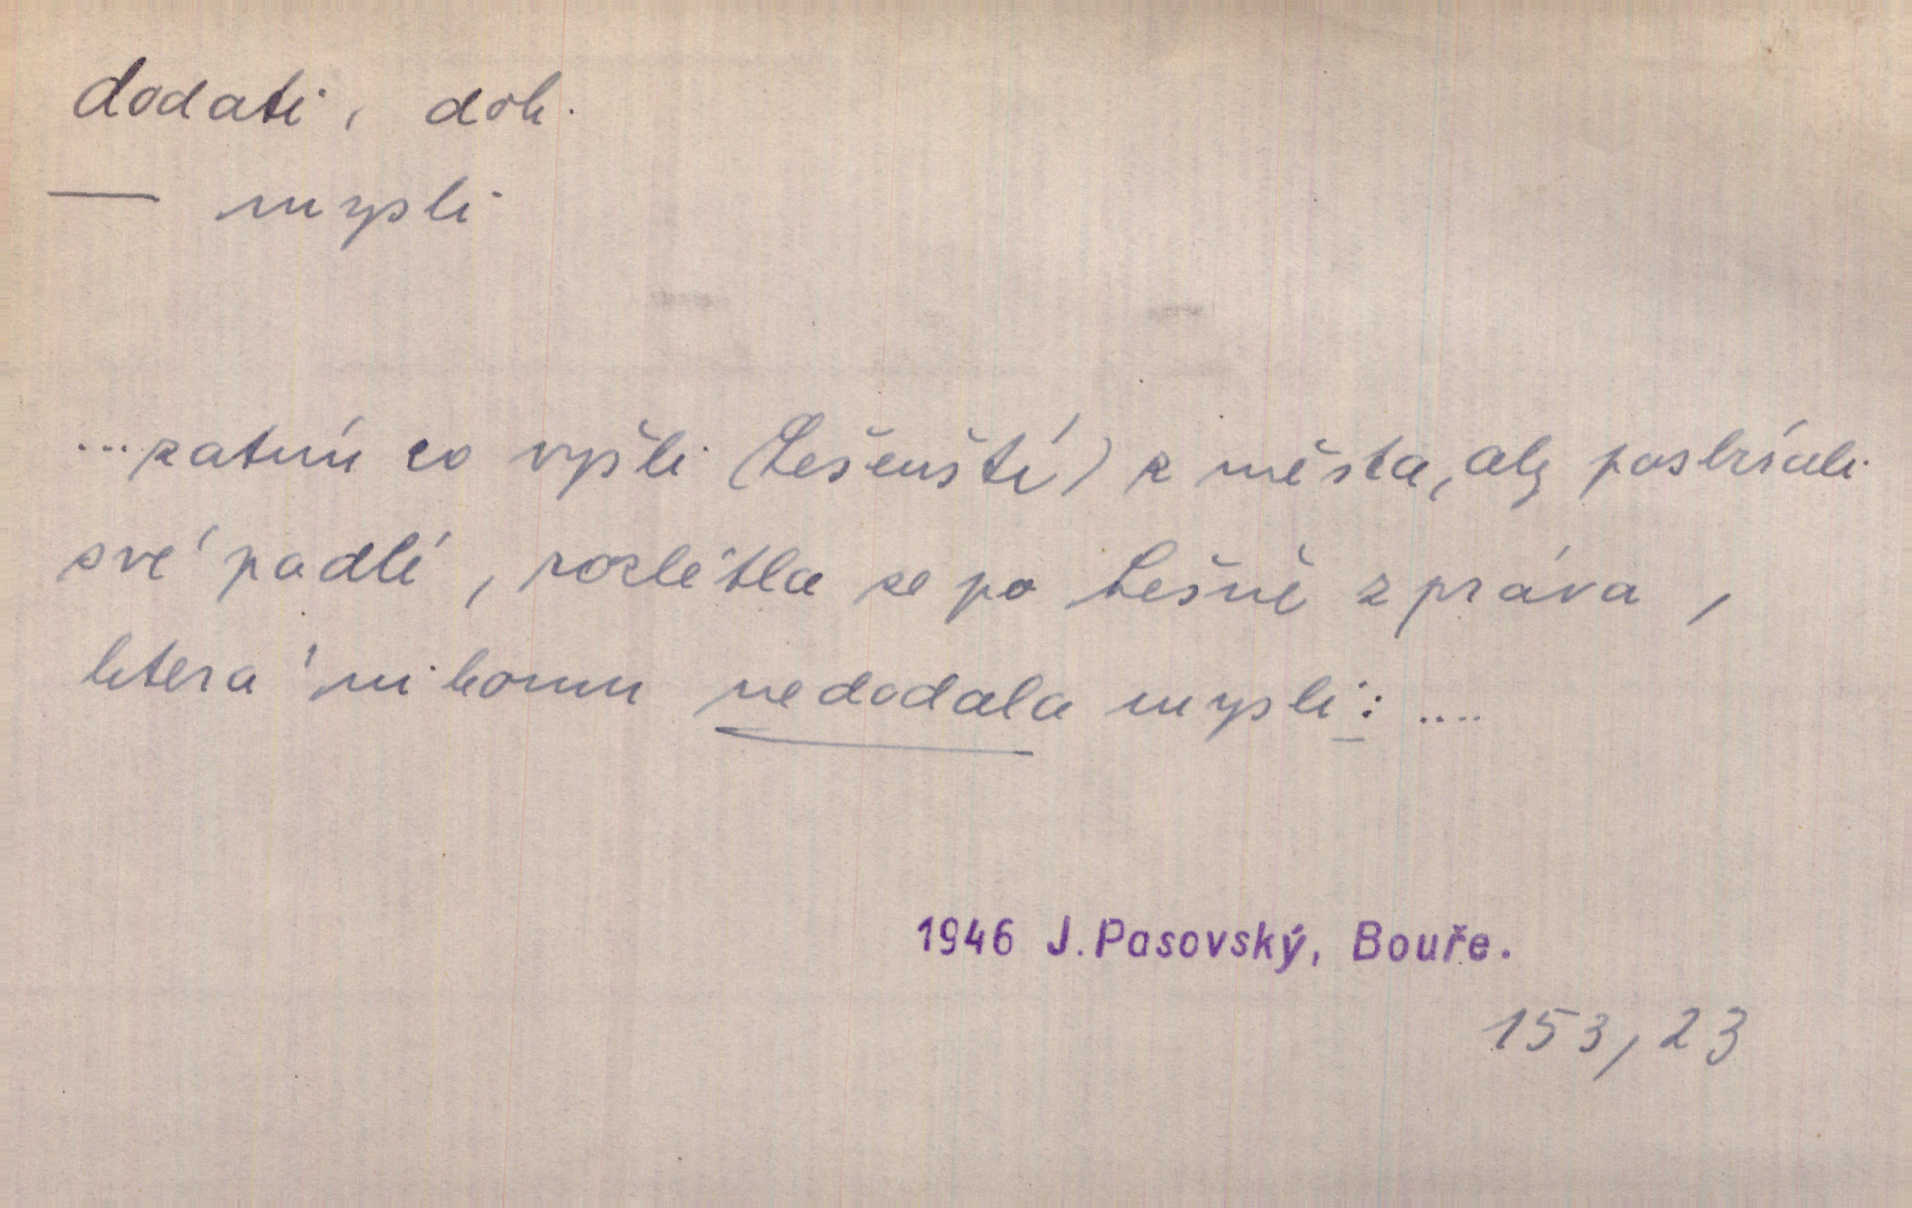 dodati, dok.
— mysli
...zatím co vyšli (Lešenští) z města, aby posbírali
své padlé, rozlétla se po Lešně zpráva,
která nikomu nedodala mysli: ....
1946 J. Pasovský, Bouře.
153,23